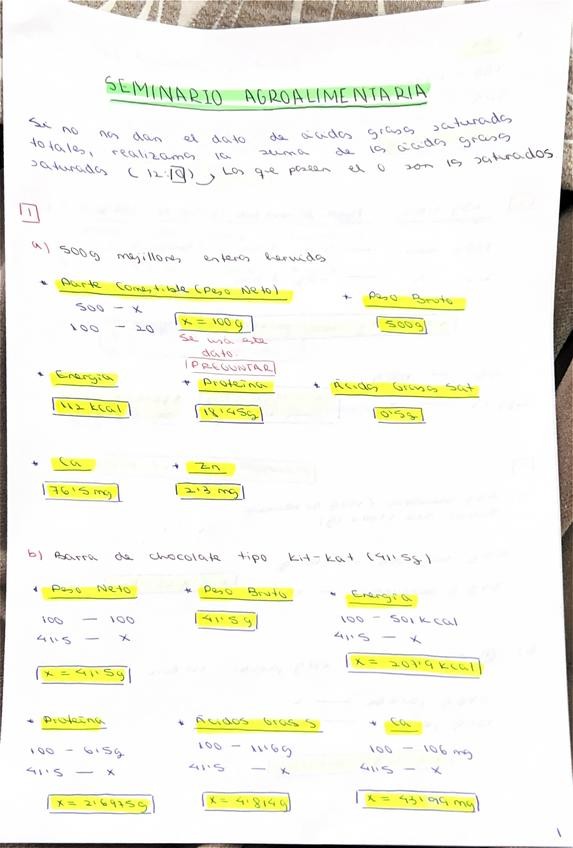 SEMINARIO AGROALIMENTARIA
Si no nos dan el dato de ácidos grasos saturados
totales, realizamos la suma de los ácidos grasos
saturados (12:0) Los que poseen el 0 son los saturados
1
a) 500g mejillones enteros hervidos
* Parte Comestible (Peso Neto) * Peso Bruto
500 - x
100 - 20 x = 100g 500g
Se usa este
dato.
PREGUNTAR
* Energía * Proteína * Ácidos Grasos Sat
112 kcal 18'45g 0'5g
* Ca * Zn
76'5 mg 2'3 mg
b) Barra de chocolate tipo Kit-Kat (41'5g)
* Peso Neto * Peso Bruto * Energía
100 — 100 41'5 g 100 - 501 Kcal
41'5 — x 41'5 - x
x = 41'5g x = 207'9 kcal
* Proteína * Ácidos Grasos * Ca
100 - 6'5g 100 - 11'6g 100 - 106 mg
41'5 — x 41'5 - x 41'5 - x
x = 2'6975g x = 4'814g x = 43'99 mg
1